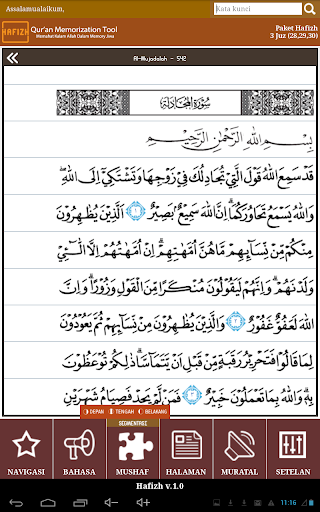 Assalamualaikum,
Kata kunci
HAFIZH
Qur'an Memorization Tool
Memahat Kalam Allah Dalam Memory Jiwa
Paket Hafizh
3 Juz (28,29,30)
Al-Mujadalah - 542
سُورَةُ المُجَادلَة
بِسْمِ اللَّهِ الرَّحْمَٰنِ الرَّحِيمِ
قَدْ سَمِعَ اللَّهُ قَوْلَ الَّتِي تُجَادِلُكَ فِي زَوْجِهَا وَتَشْتَكِي إِلَى اللَّهِ
وَاللَّهُ يَسْمَعُ تَحَاوُرَكُمَا إِنَّ اللَّهَ سَمِيعٌ بَصِيرٌ ١ الَّذِينَ يُظَاهِرُونَ
مِنكُم مِّن نِّسَائِهِم مَّا هُنَّ أُمَّهَاتِهِمْ إِنْ أُمَّهَاتُهُمْ إِلَّا اللَّائِي
وَلَدْنَهُمْ وَإِنَّهُمْ لَيَقُولُونَ مُنكَرًا مِّنَ الْقَوْلِ وَزُورًا وَإِنَّ
اللَّهَ لَعَفُوٌّ غَفُورٌ ٢ وَالَّذِينَ يُظَاهِرُونَ مِن نِّسَائِهِمْ ثُمَّ يَعُودُونَ
لِمَا قَالُوا فَتَحْرِيرُ رَقَبَةٍ مِّن قَبْلِ أَن يَتَمَاسَّا ذَٰلِكُمْ تُوعَظُونَ
بِهِ وَاللَّهُ بِمَا تَعْمَلُونَ خَبِيرٌ ٣ فَمَن لَّمْ يَجِدْ فَصِيَامُ شَهْرَيْنِ
DEPAN TENGAH BELAKANG
SEGMENTASI
NAVIGASI BAHASA MUSHAF HALAMAN MUROTAL SETELAN
Hafizh v.1.0
11:16